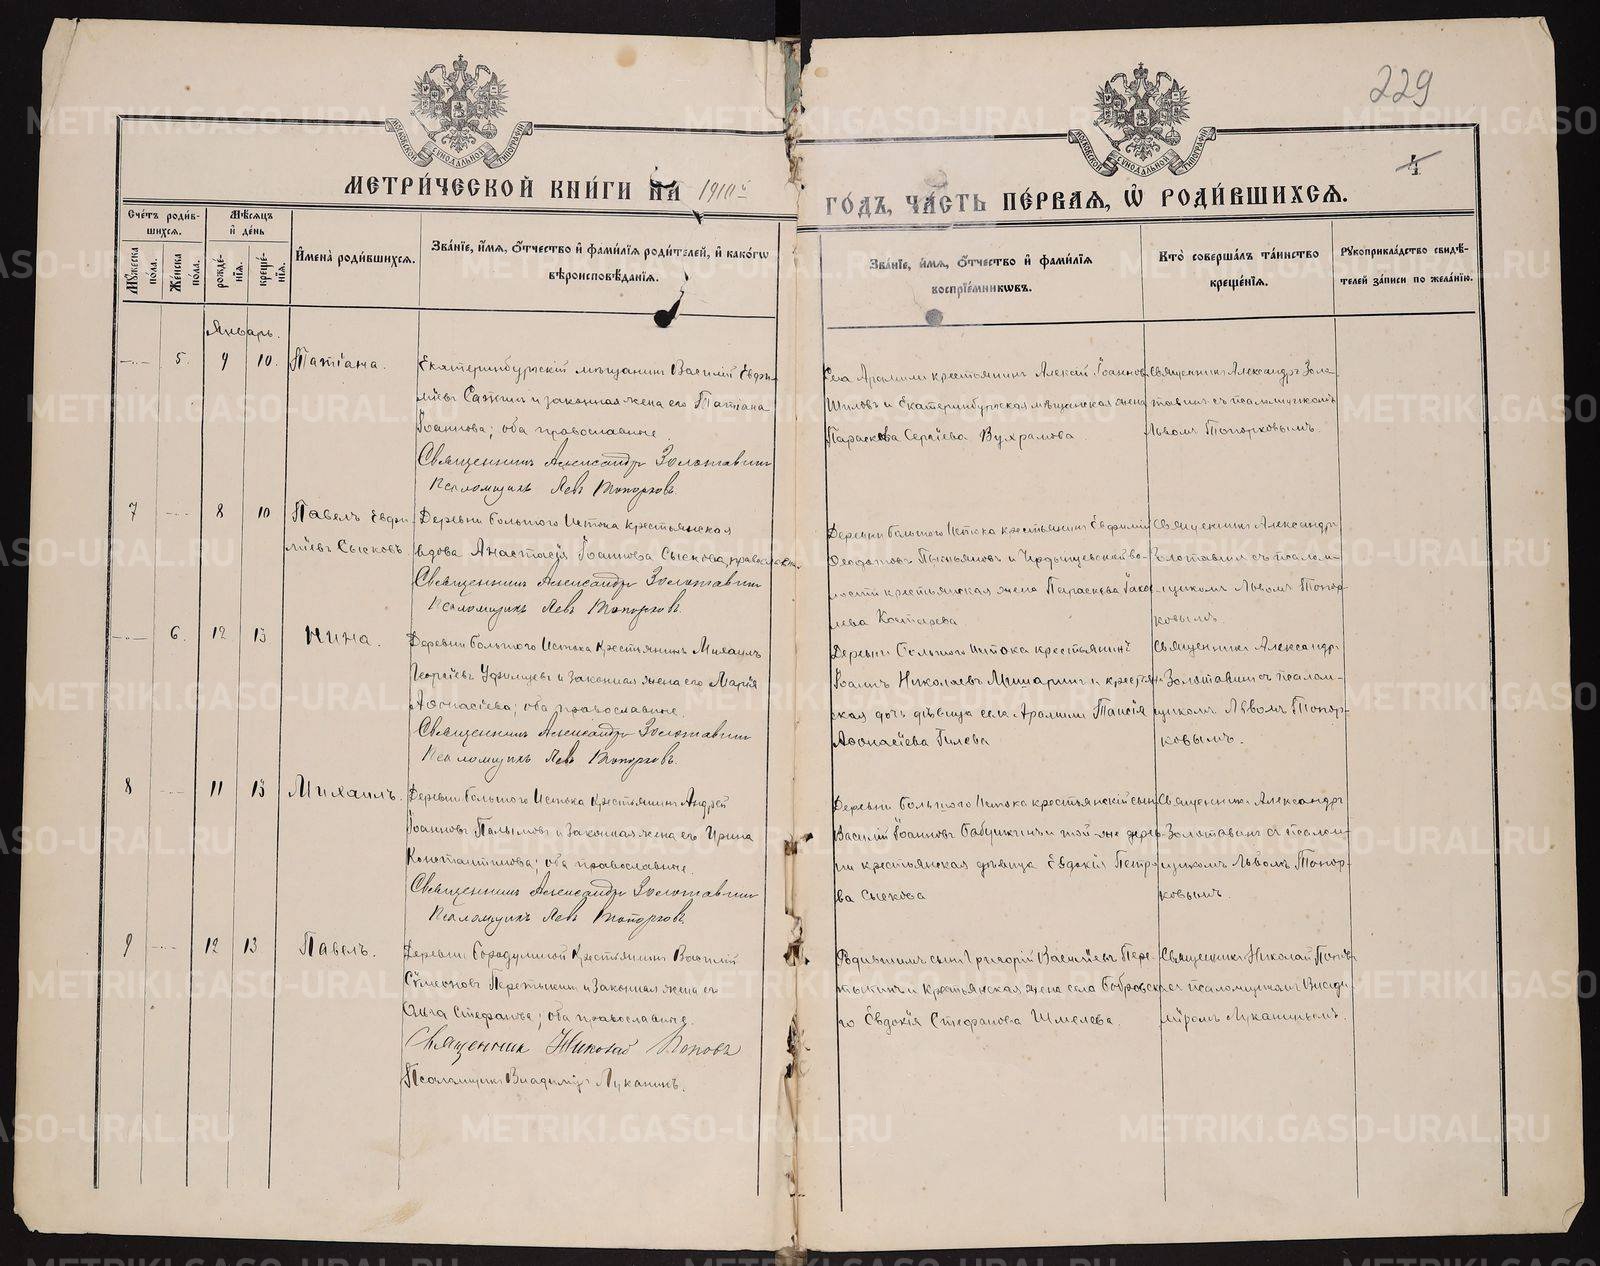 229
4
МЕТРИ́ЧЕСКОЙ КНИ́ГИ НА 1910й ГО́ДЪ, ЧА́СТЬ ПЕ́РВАЯ, Ѡ҆ РОДИ́ВШИХСЯ.
Сче́тъ роди́в-
шихся.
Мѣ́сяцъ
и҆ де́нь
Мꙋ́жеска по́ла.
Же́нска по́ла.
рожде́-
нїѧ.
креще́-
нїѧ.
И҆мена̀ роди́вшихсѧ.
Зва́нїе, и҆́мѧ, ѻ҆́тчество и҆ фами́лїѧ роди́телей, и҆ како́гѡ
вѣроисповѣ́данїѧ.
Зва́нїе, и҆́мѧ, ѻ҆́тчество и҆ фами́лїѧ
воспрїе́мникѡвъ.
Кто̀ соверша́лъ та́инство
креще́нїѧ.
Рꙋкоприкла́дство свидѣ́-
телей за́писи по жела́нїю.
Январь.
5. 9 10. Татіана.
Екатеринбургскій мѣщанинъ Василій Евфи-
міевъ и законная жена его Татіана
Іоаннова; оба православные.
Священникъ Александръ Золотавинъ
Псаломщикъ Левъ Топорковъ.
Села Арамили крестьянинъ Алексій Іоанновъ
Шиловъ и Екатеринбургская мѣщанская жена
Параскева Сергіева Вухрамова
Священникъ Александръ Золо-
тавинъ съ псаломщикомъ
Львомъ Топорковымъ.
7 8 10 Павелъ Евфи-
міевъ Сысковъ.
Деревни Большого Истока крестьянская
вдова Анастасія Іоаннова Сыскова, православн.
Священникъ Александръ Золотавинъ
Псаломщикъ Левъ Топорковъ.
Деревни Большого Истока крестьянинъ Евфимій
волости крестьянская жена Параскева
Священникъ Александръ
Золотавинъ съ псалом-
щикомъ Львомъ Топор-
ковымъ.
6. 12 13 Нина.
Деревни Большого Истока крестьянинъ Михаилъ
Георгіевъ и законная жена его Марія
Аѳонасіева; оба православные.
Священникъ Александръ Золотавинъ
Псаломщикъ Левъ Топорковъ.
Деревни Большого Истока крестьянинъ
Іоаннъ Николаевъ Мишаринъ и крестьян-
ская дочь дѣвица села Арамили Таисія
Аѳонасіева Гилева
Священникъ Александръ
Золотавинъ съ псалом-
щикомъ Львомъ Топор-
ковымъ.
8 11 13 Михаилъ.
Деревни Большого Истока крестьянинъ Андрей
Іоанновъ Палымовъ и законная жена его Ирина
Константинова; оба православные.
Священникъ Александръ Золотавинъ
Псаломщикъ Левъ Топорковъ.
Деревни Большого Истока крестьянскій сынъ
Василій Іоанновъ Бабушкинъ и той-же дерев-
ни крестьянская дѣвица Евдокія Петро-
ва Сыскова
Священникъ Александръ
Золотавинъ съ псалом-
щикомъ Львомъ Топор-
ковымъ.
9 12 13 Павелъ.
Деревни Бородулиной крестьянинъ Василій
Сѵмеоновъ и законная жена его
Анна Стефанова; оба православные.
Священникъ Николай Поповъ
Псаломщикъ Владиміръ Луканинъ.
Родившимъ сынъ Григорій Васильевъ
и крестьянская жена села Бобровска-
го Евдокія Стефанова Шмелева.
Священникъ Николай Поповъ
съ псаломщикомъ Влади-
міромъ Луканинымъ.